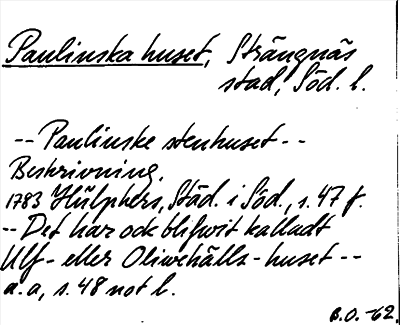 Paulinska huset, Strängnäs
stad, Söd. l.
-- Paulinske stenhuset --
Beskrivning.
1783 Hülphers, Städ. i Söd., s. 47 f.
-- Det har ock blifwit kalladt
Ulf- eller Oliwehälls-huset --
a.a, s. 48 not l.
B.O. -62.